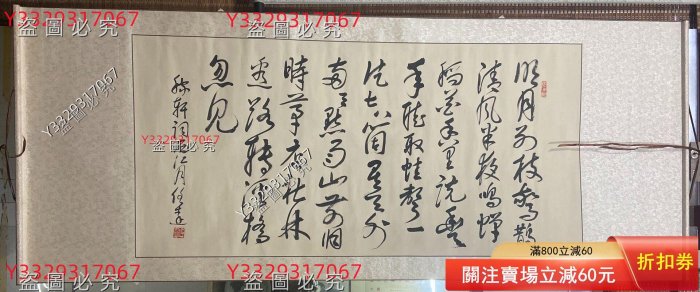 Y3329317067
盜圖必究
Y3329317067
盜圖必究
Y3329317067
盜圖必究
明月別枝驚鵲
清風半夜鳴蟬
稻花香里說豐
年聽取蛙聲一
片七八個星天外
兩三點雨山前舊
時茅店社林
邊路轉溪橋
忽見
稼軒詞西江月
Y3329317067
盜圖必究
Y3329317067
盜圖必究
Y3329317067
盜圖必究
滿800立減60
關注賣場立減60元
折扣券
Y3329317067
盜圖必究
Y3329317067
盜圖必究
Y3329317067
盜圖必究